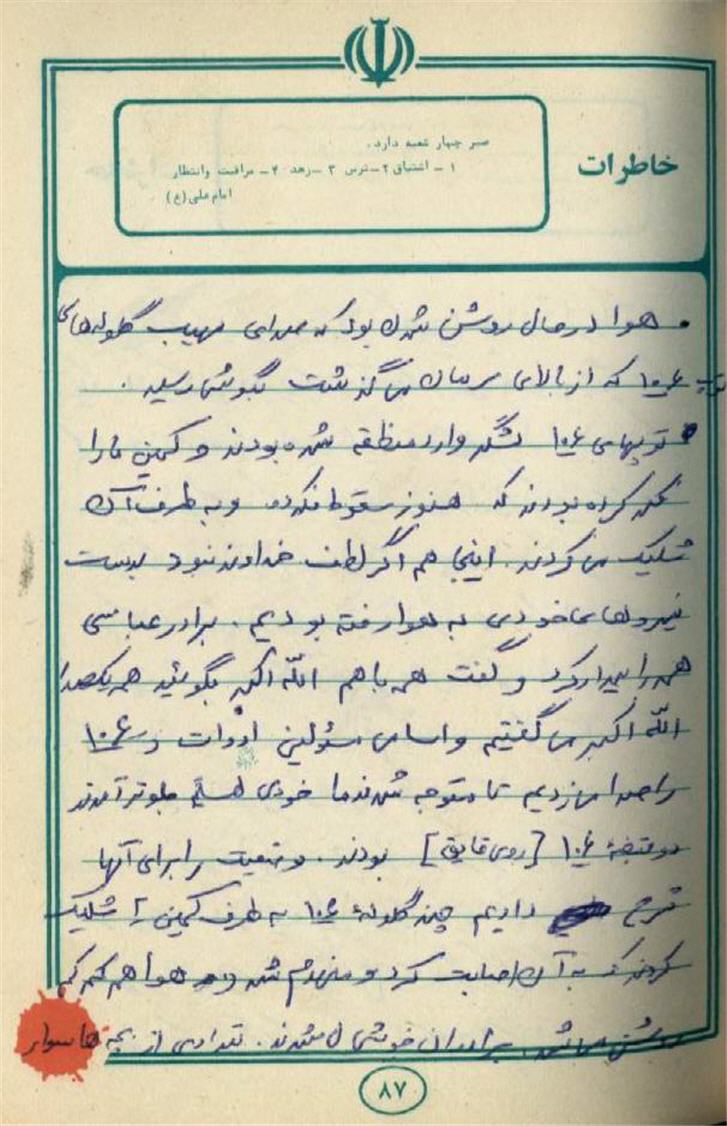 خاطرات
صبر چهار شعبه دارد.
۱ - اشتیاق ۲ - ترس ۳ - زهد ۴ - مراقبت وانتظار
امام علی (ع)
هوا در حال روشن شدن بود که صدای مهیب گلوله‌های
توپ ۱۰۶ که از بالای سرمان می‌گذشت بگوش رسید.
توپهای ۱۰۶ لشگر وارد منطقه شده بودند و کمین ما را
فکر کرده بودند که هنوز سقوط نکرده و به طرف آن
شلیک می‌کردند. اینجا هم اگر لطف خداوند نبود بدست
نیروهای خودی به هوا رفته بودیم. برادر عباسی
همه را بیدار کرد و گفت همه باهم الله اکبر بگوئید همه یکصدا
الله اکبر می‌گفتیم و اسامی مسؤلین ادوات و ۱۰۶
را صدا می‌زدیم تا متوجه شدند ما خودی هستیم جلوتر آمدند
دو قبضه ۱۰۶ [روی قایق] بودند. وضعیت را برای آنها
شرح دادیم چند گلوله ۱۰۶ به طرف کمین ۲ شلیک
کردند که به آن اصابت کرد و منهدم شد هوا هم کم کم
روشن می‌شد. برادران خوشحال شدند. تعدادی از بچه ها سوار
۸۷